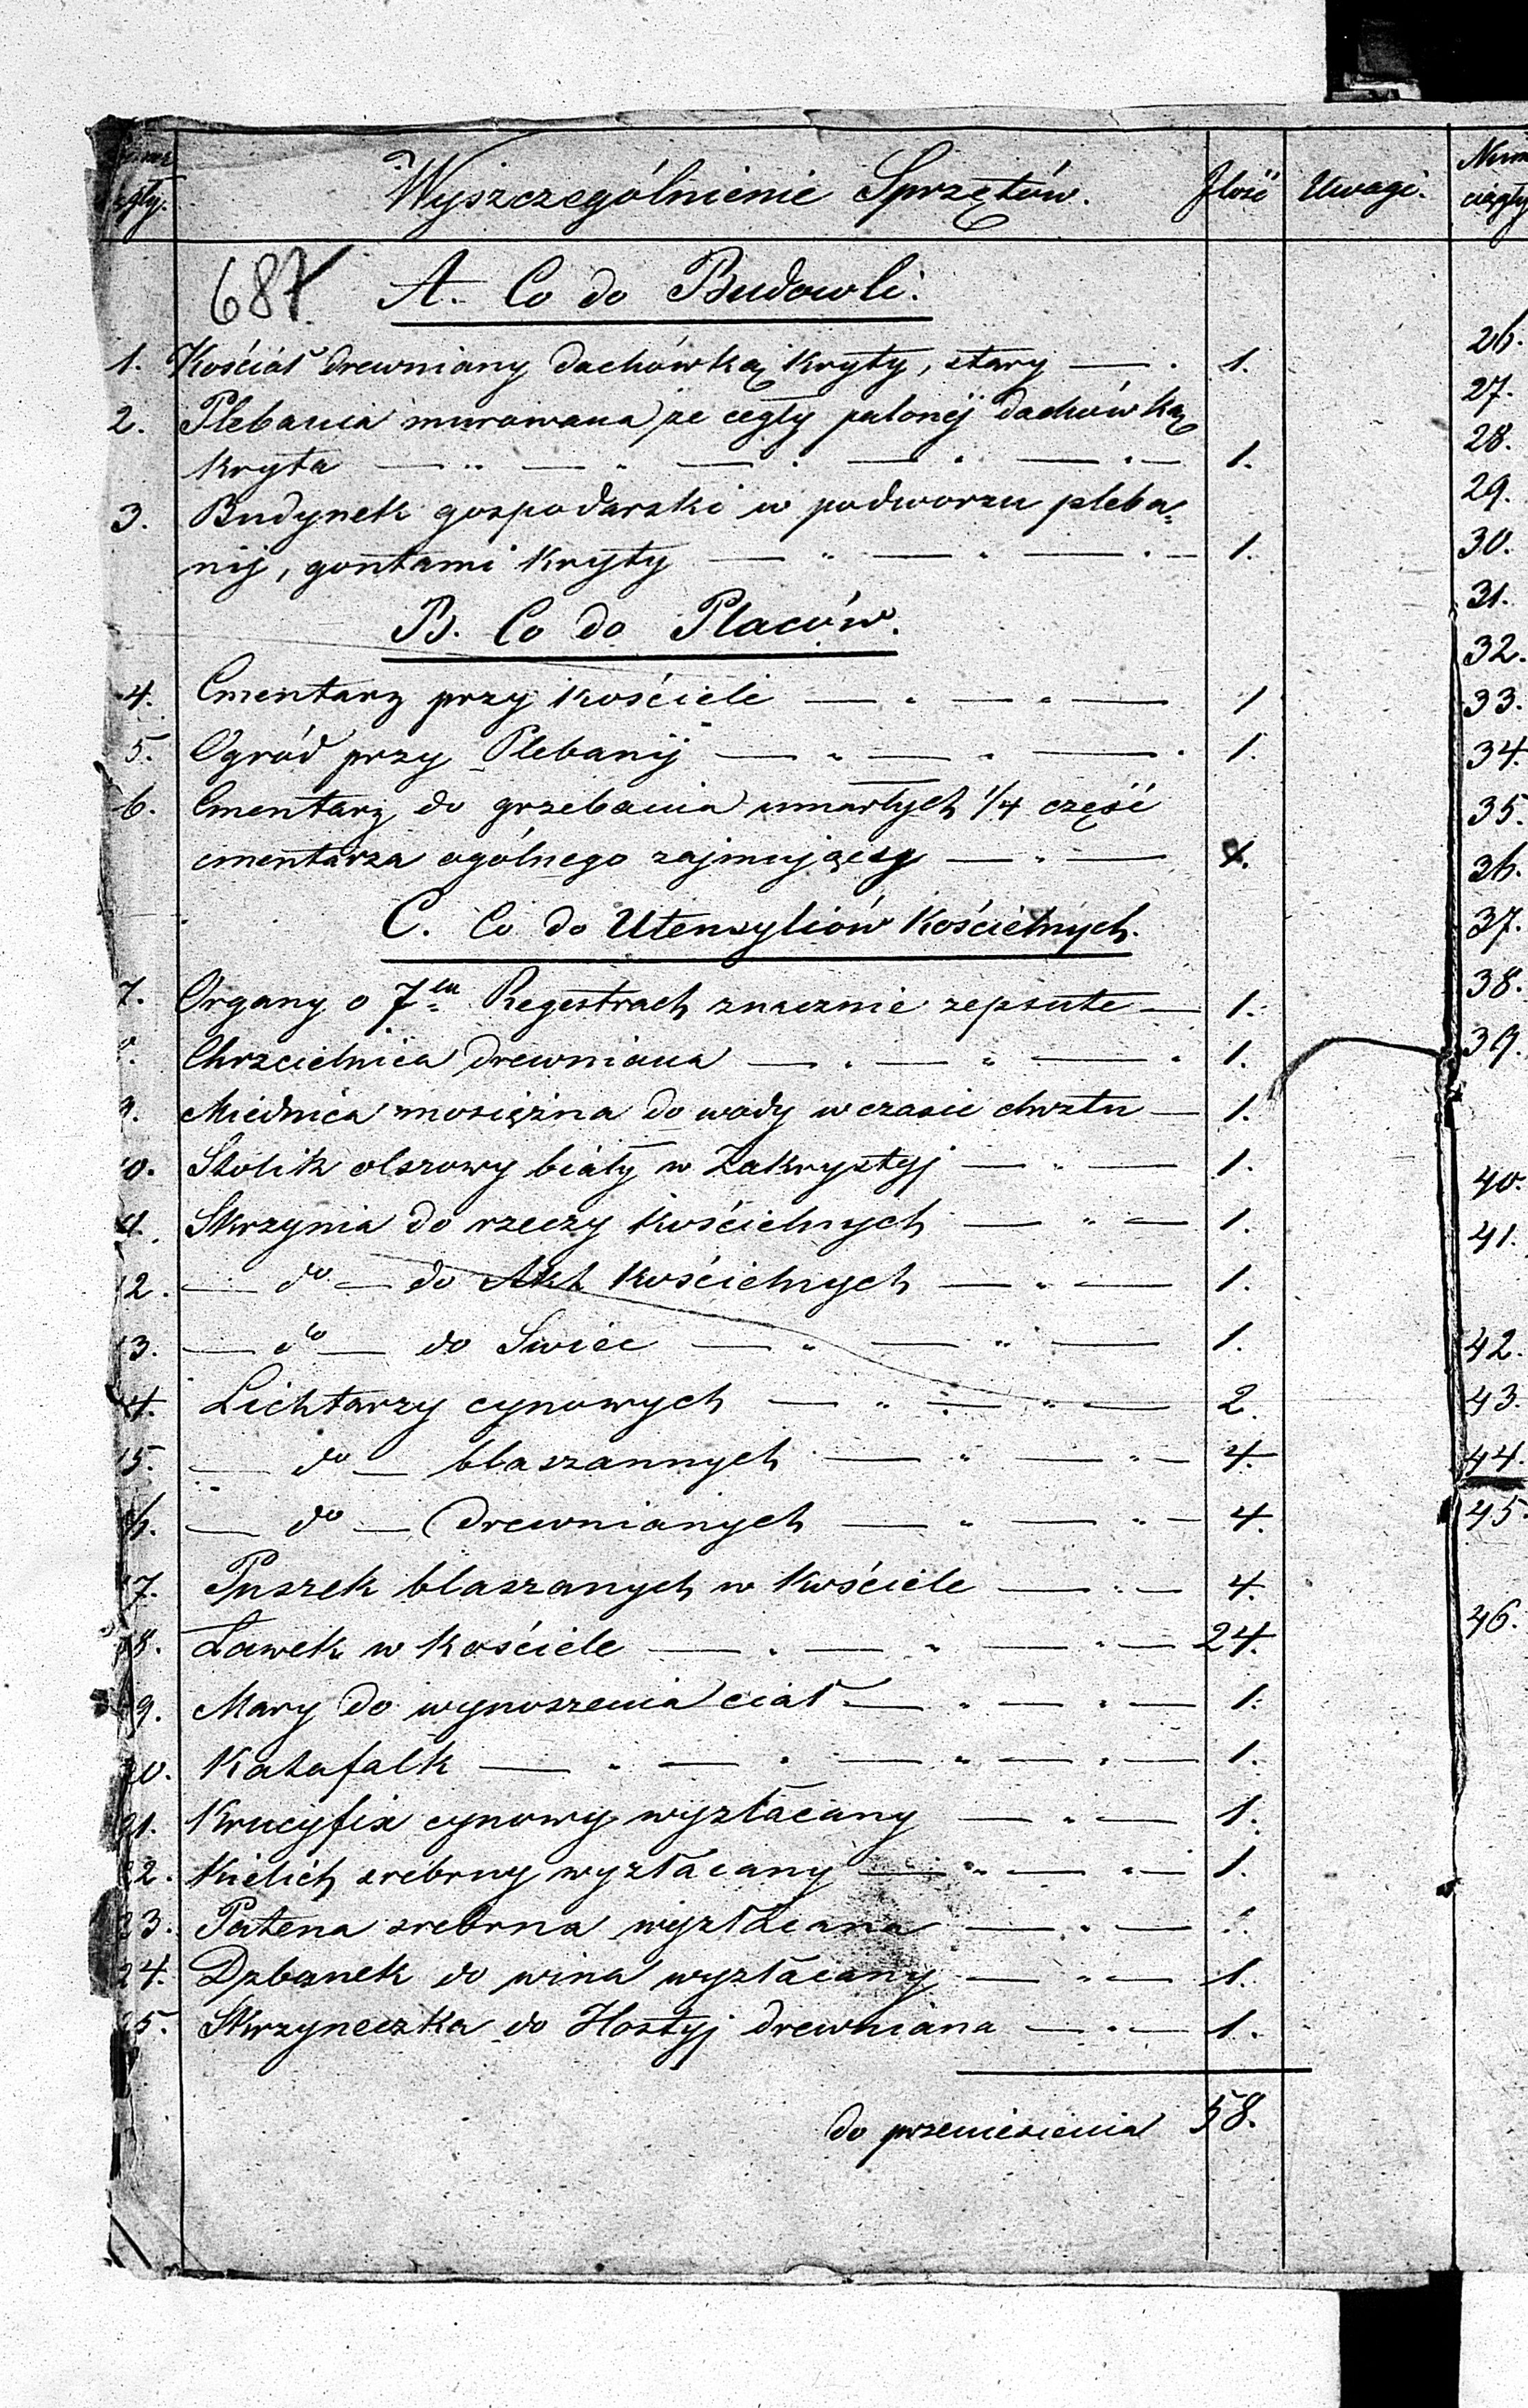 Wyszczególnienie Sprzętów. Jlość Uwagi. Num
ciągły
687. A. Co do Budowli.
1. Kościoł drewniany dachówką kryty, stary — 1.
2. Plebania murowana ze cegły palonéj dachówką
kryta — " — " — " — " — " — 1.
3. Budynek gospodarski w podworzu pleba=
nij, gontami kryty — " — " — " — 1.
B. Co do Placów.
4. Cmentarz przy kościele — " — " — 1
5. Ogród przy Plebanij — " — " — 1.
6. Cmentarz do grzebania umarłych 1/4 część
cmentarza ogólnego zajmujący — " —
C. Co do Utensyliów Kościelnych.
7. Organy o 7miu Regestrach znacznie zepsute — 1.
Chrzcielnica drewniana — " — " — 1.
9. Miednica mosiężna do wody w czasie chrztu — 1.
10. Stolik olszowy biały w Zakrystyj — " — 1.
11. Skrzynia do rzeczy kościelnych — " — 1.
12. — do — do Akt Kościelnych — " — 1.
13. — do — do Swiec — " — " — 1.
14. Lichtarzy cynowych — " — " — 2.
15. — do — blaszannych — " — " — 4.
16. — do — drewnianych — " — " — 4.
17. Puszek blaszanych w kościele — " — 4.
18. Ławek w kościele — " — " — " — 24.
19. Mary do wynoszenia ciał — " — " — 1.
20. Katafalk — " — " — " — " — 1.
21. Krucyfix cynowy wyzłacany — " — 1.
22. Kielich srebrny wyzłacany — " — " — 1.
23. Patena srebrna wyzłacana — " — 1.
24. Dzbanek do wina wyzłacany — " — 1.
25. Skrzyneczka do Hostyj drewniana — " — 1.
do przeniesienia 58.
26.
27.
28.
29.
30.
31.
32.
33.
34.
35.
36.
37.
38.
39.
40.
41.
42.
43.
44.
45.
46.